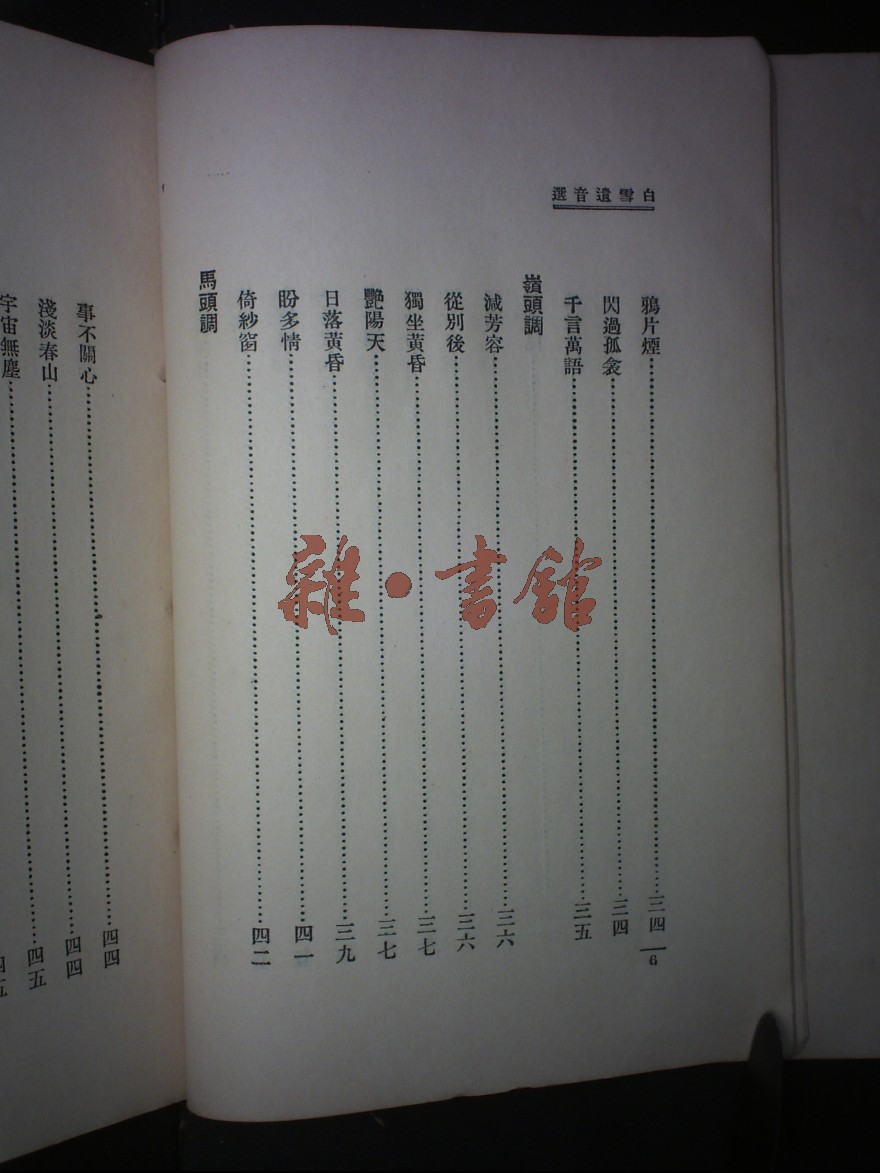 白雪遺音選
鴉片煙……三四
閃過孤衾……三四
千言萬語……三五
嶺頭調
減芳容……三六
從別後……三六
獨坐黃昏……三七
艷陽天……三七
日落黃昏……三九
盼多情……四一
倚紗窗……四二
馬頭調
6
事不關心……四四
淺淡春山……四四
宇宙無塵……四五
雜·書館